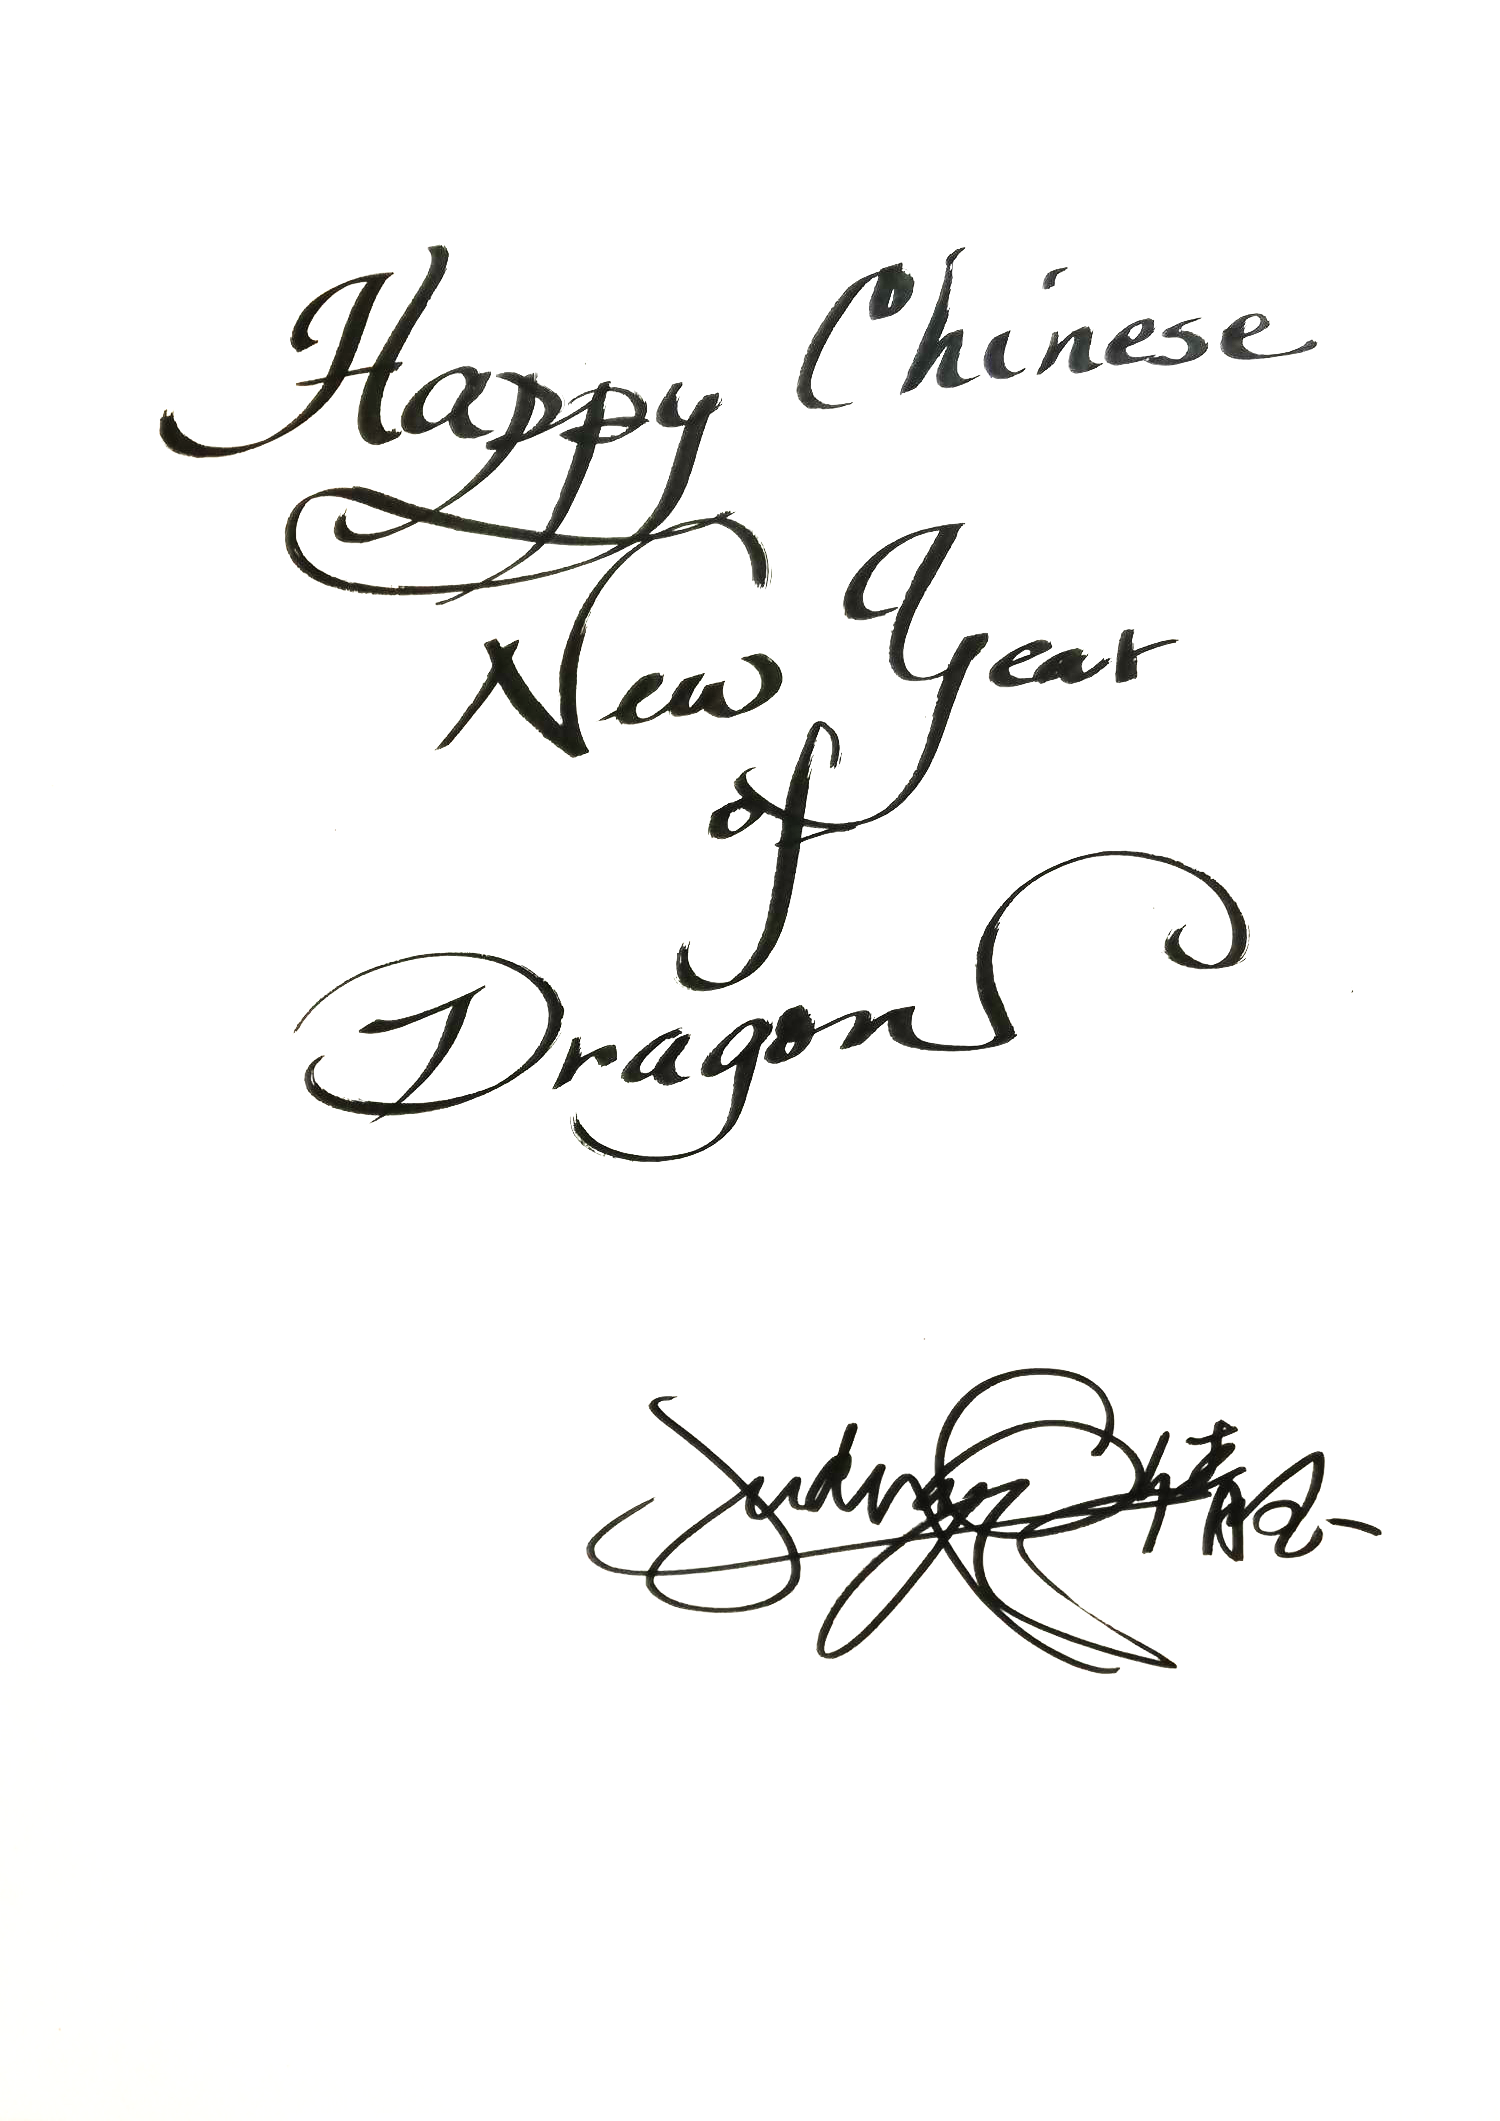 Happy Chinese
New Year
of
Dragon